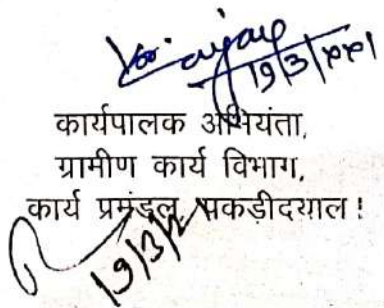 19/3/2021
कार्यपालक अभियंता,
ग्रामीण कार्य विभाग,
कार्य प्रमंडल, पकड़ीदयाल!
19/3/21